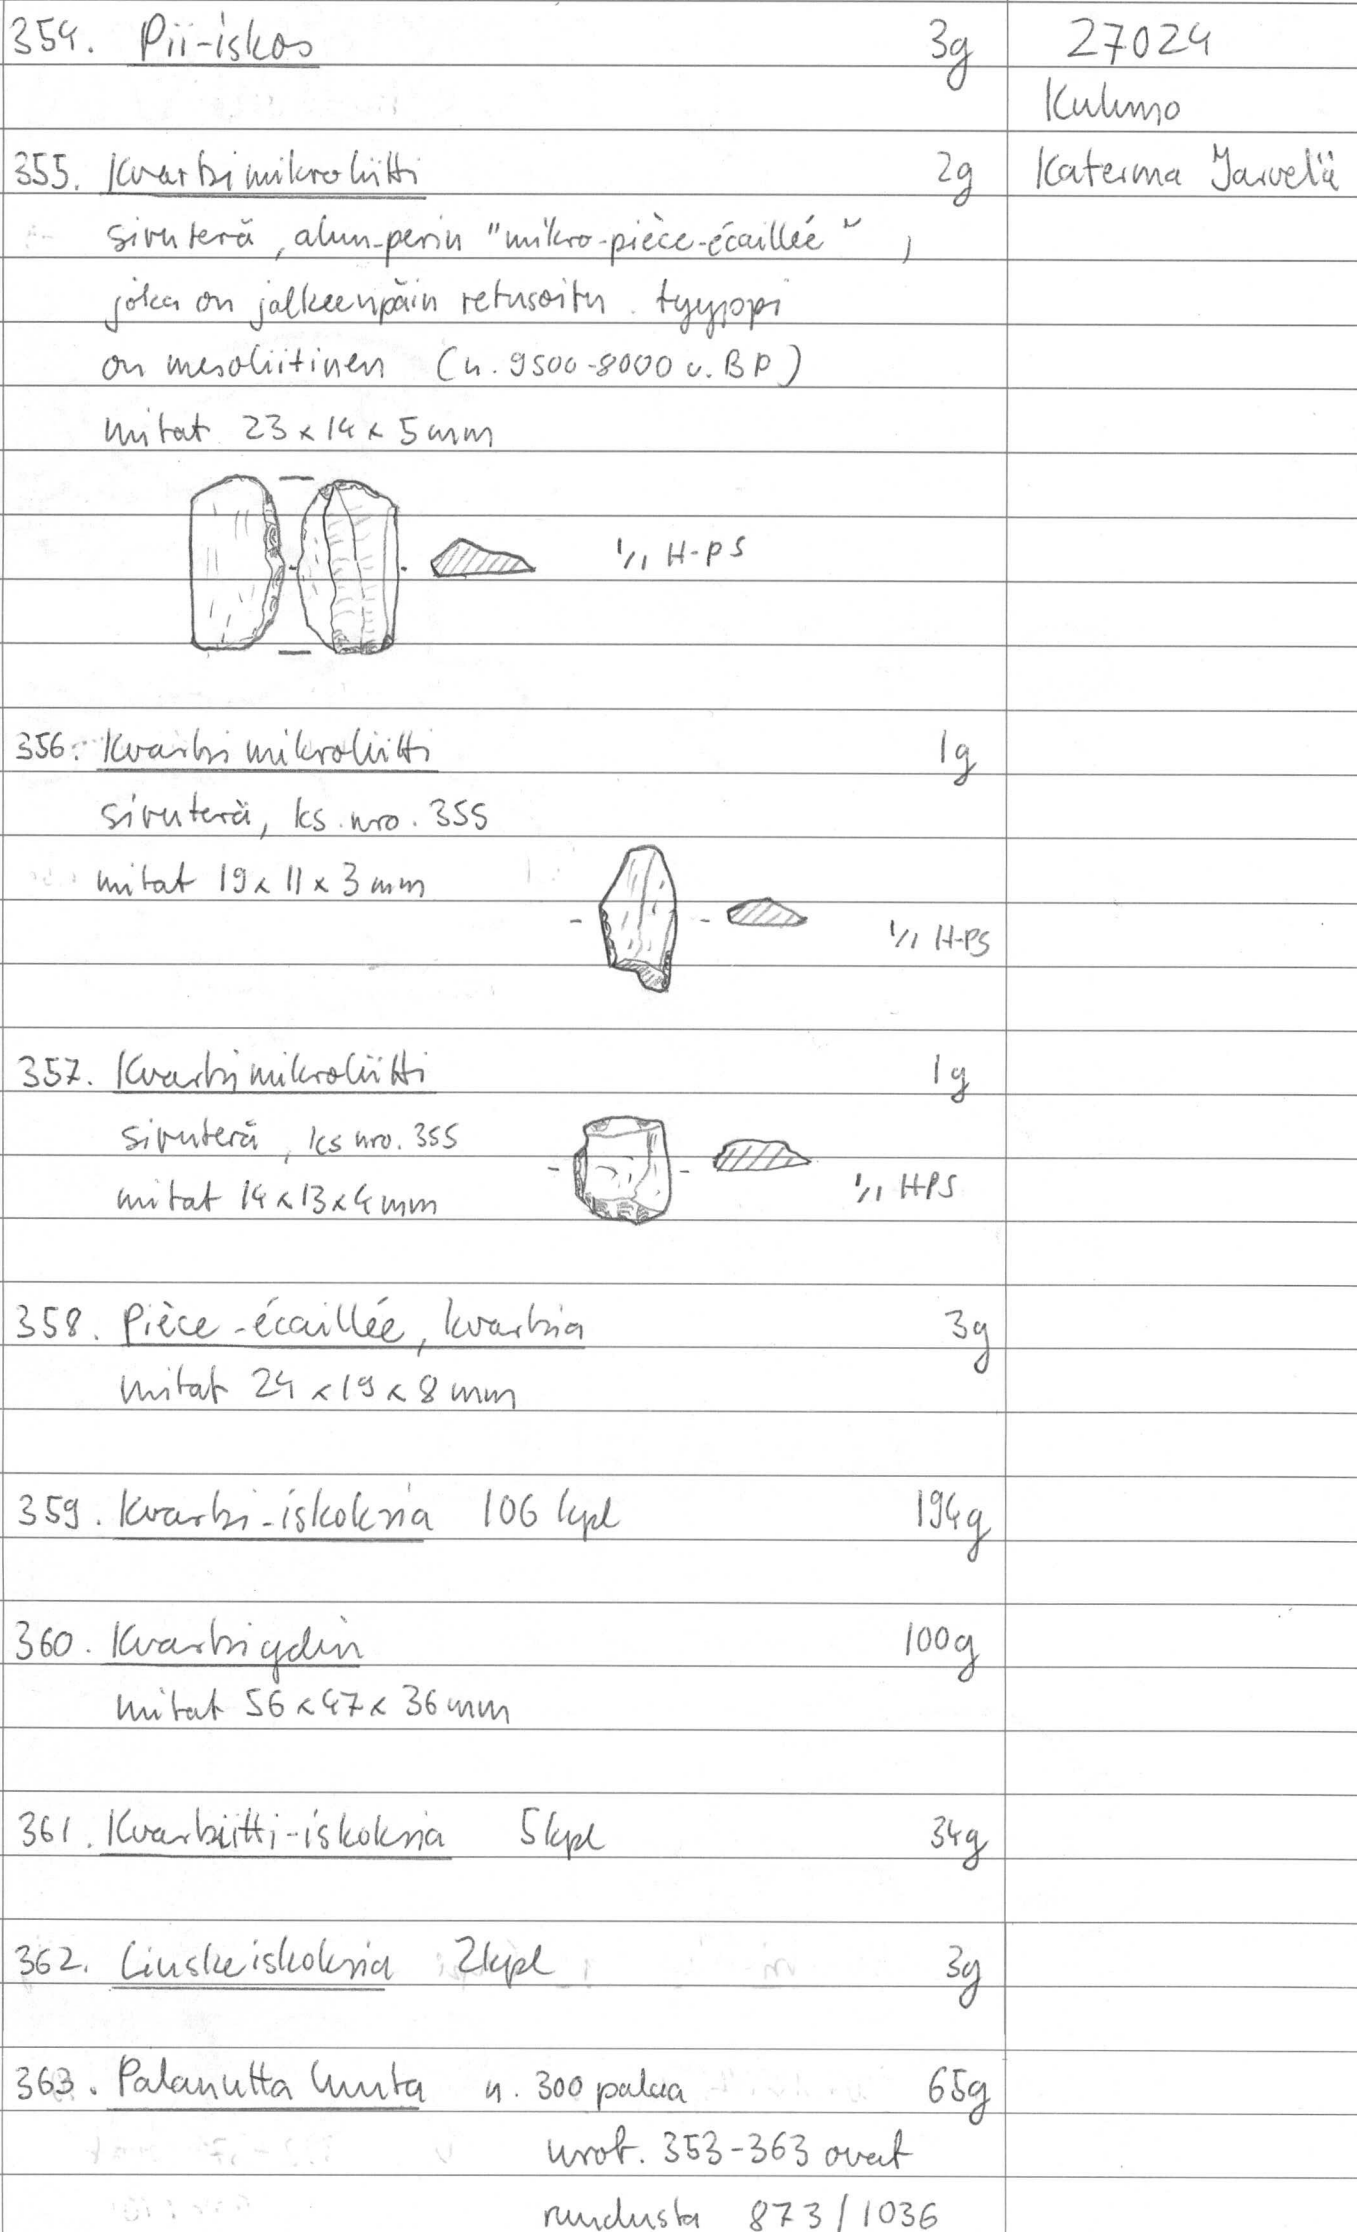 354. Pii-iskos 3g 27024
Kuhmo
355. Kvartsimikroliitti 2g Katerma Järvelä
sivuterä, alun-perin "mikro-pièce-écaillée",
joka on jälkeenpäin retusoitu. tyyppi
on mesoliitinen (n. 9500-8000 v. BP)
mitat 23 x 14 x 5 mm
1/1 H-PS
356. Kvartsimikroliitti 1g
sivuterä, ks. nro. 355
mitat 19 x 11 x 3 mm
1/1 H-PS
357. Kvartsimikroliitti 1g
sivuterä, ks nro. 355
mitat 14 x 13 x 4 mm
1/1 H-PS
358. Pièce-écaillée, kvartsia 3g
mitat 24 x 19 x 8 mm
359. Kvartsi-iskoksia 106 kpl 194g
360. Kvartsiydin 100g
mitat 56 x 47 x 36 mm
361. Kvartsiitti-iskoksia 5 kpl 34g
362. Liuskeiskoksia 2 kpl 3g
363. Palanutta luuta n. 300 palaa 65g
nrot. 353-363 ovat
ruudusta 873/1036